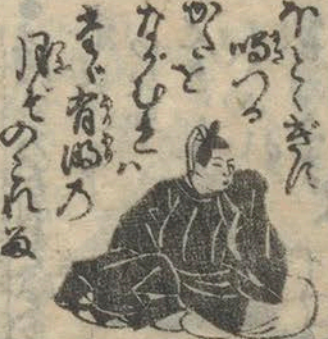 ほとゝぎす
鳴つる
かたを
ながむれば
たゞ有明の
月ぞのこれる